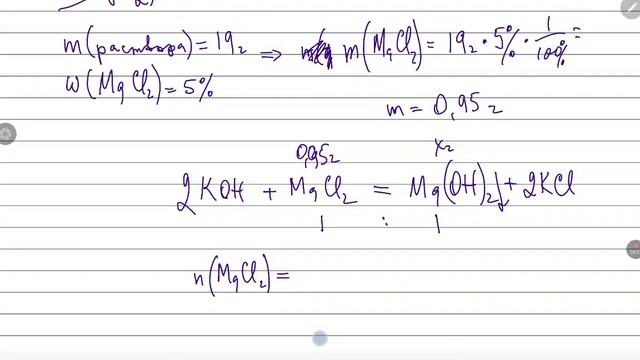 m(раствора) = 19г ⇒ m(MgCl₂) = 19г · 5% · 1/100% =
w(MgCl₂) = 5%
m = 0,95г
0,95г xг
2KOH + MgCl₂ = Mg(OH)₂↓ + 2KCl
1 : 1
n(MgCl₂) =